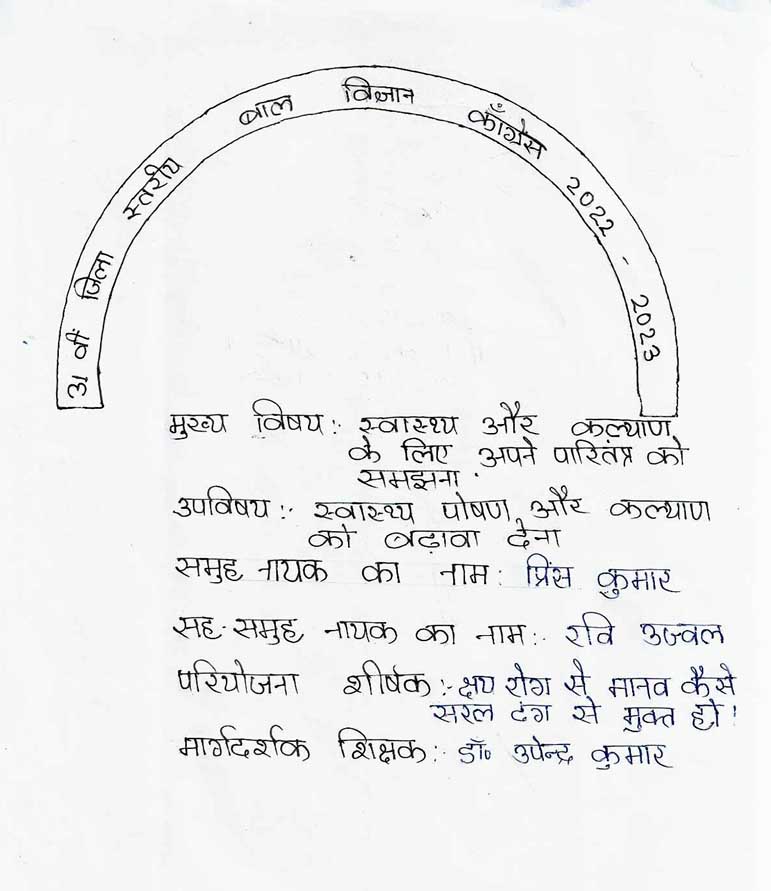 31 वीं जिला स्तरीय बाल विज्ञान काँग्रेस 2022 - 2023
मुख्य विषय:- स्वास्थ्य और कल्याण
के लिए अपने पारितंत्र को
समझना.
उपविषय:- स्वास्थ्य पोषण और कल्याण
को बढ़ावा देना
समुह नायक का नाम: प्रिंस कुमार
सह-समुह नायक का नाम:- रवि उज्वल
परियोजना शीर्षक:- क्षय रोग से मानव कैसे
सरल ढंग से मुक्त हो!
मार्गदर्शक शिक्षक:- डॉ० उपेन्द्र कुमार